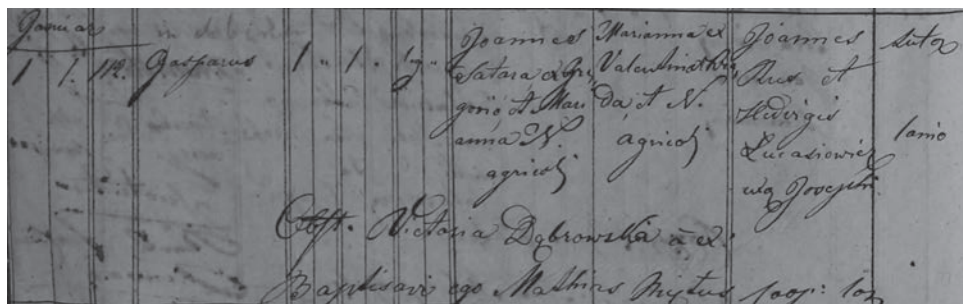 Januar
1 1. 112. Gasparus 1 " 1 .
Joannes
Satara ex Gre
gorio et Mari
anna N.
agricoli
Marianna ex
Valentino
da et N.
agricoli
Joannes
Rus et
Hedvigis
Lucasiowicz
uxa Josephi.
sutor
lanio
Obst. Victoria Dąbrowska a ex.
Baptisavi ego Mathias coop: loc